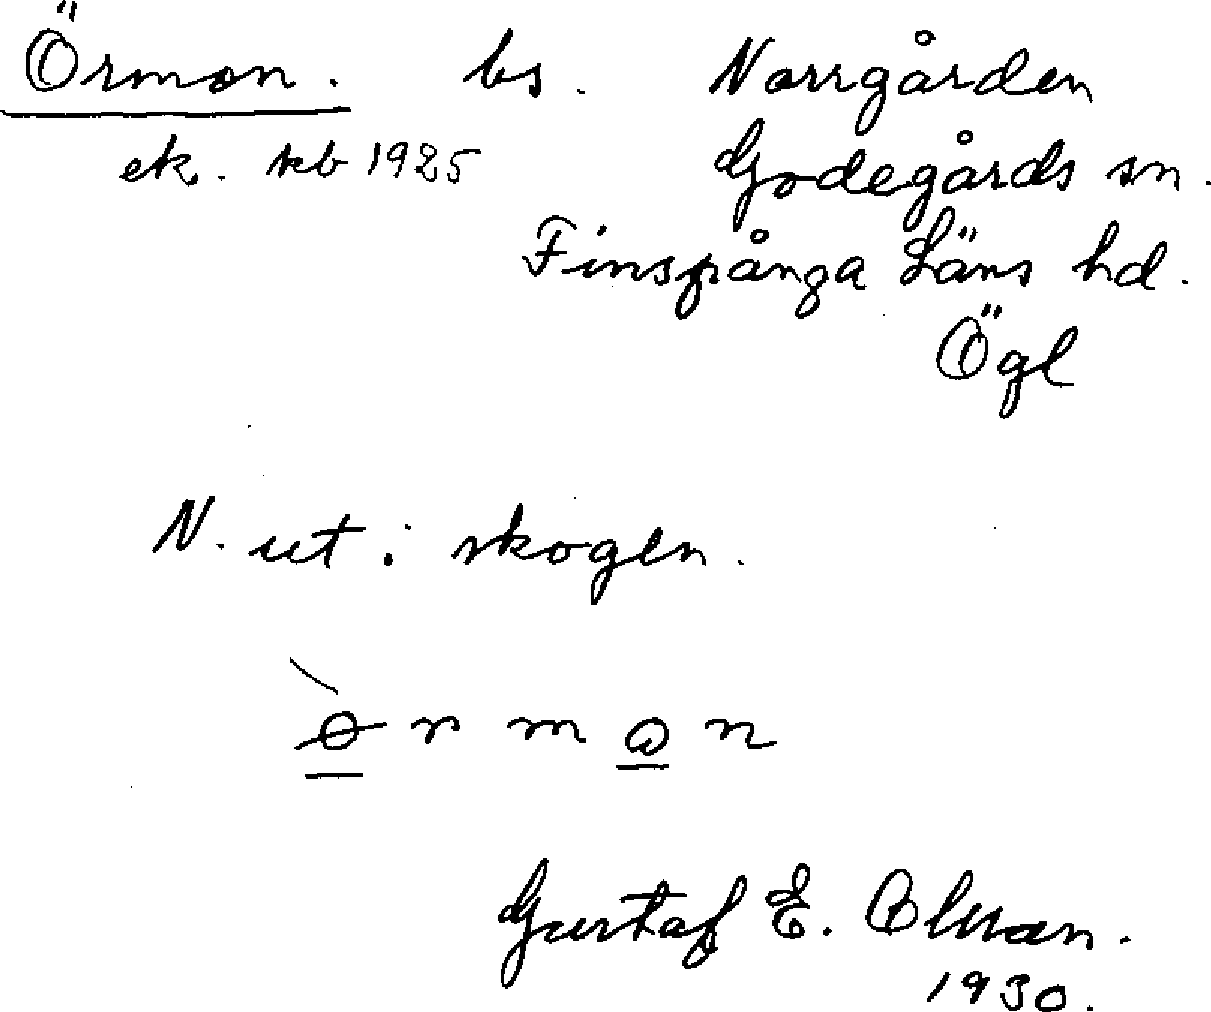 Örmon. bs. Norrgården
ek. skb 1925 Godegårds sn.
Finspånga Läns hd.
Ögl
N. ut i skogen.
Gustaf E. Olsson.
1930.